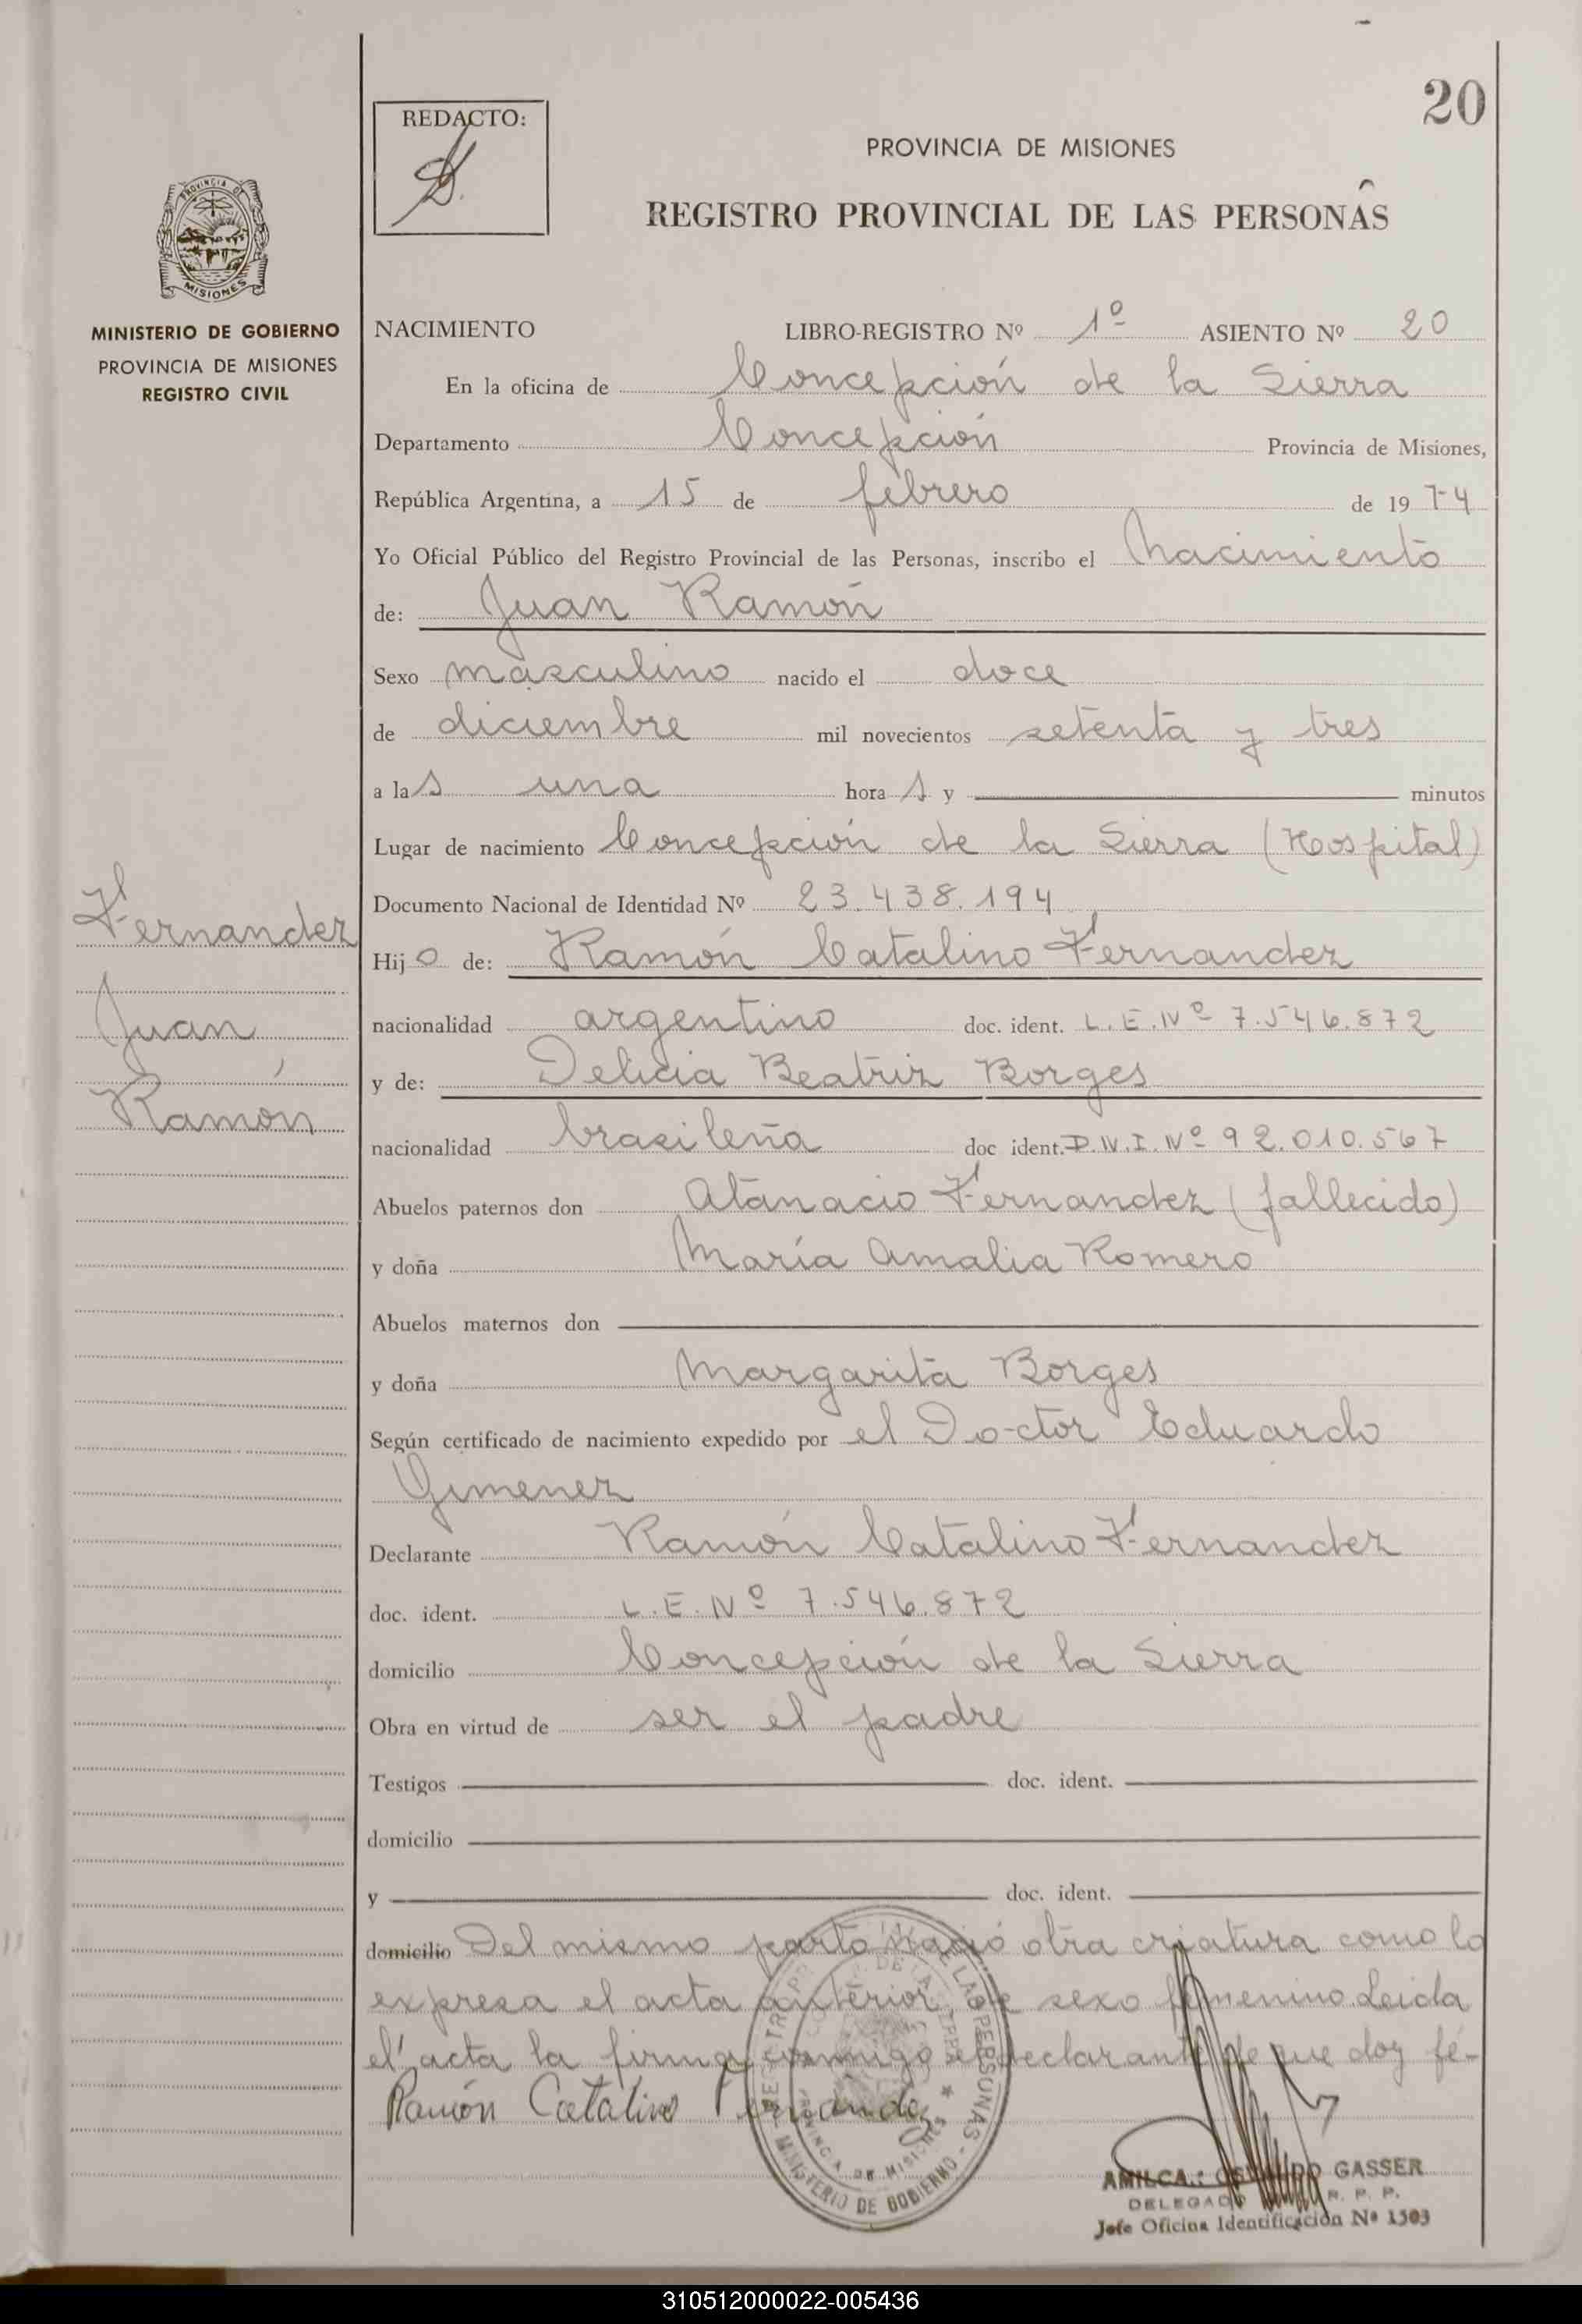 20
REDACTO:
PROVINCIA DE MISIONES
REGISTRO PROVINCIAL DE LAS PERSONAS
PROVINCIA DE
MISIONES
MINISTERIO DE GOBIERNO
PROVINCIA DE MISIONES
REGISTRO CIVIL
NACIMIENTO LIBRO-REGISTRO Nº 1º ASIENTO Nº 20
En la oficina de Concepción de la Sierra
Departamento Concepción Provincia de Misiones,
República Argentina, a 15 de febrero de 1974
Yo Oficial Público del Registro Provincial de las Personas, inscribo el Nacimiento
de: Juan Ramón
Sexo masculino nacido el doce
de diciembre mil novecientos setenta y tres
a las una horas y minutos
Lugar de nacimiento Concepción de la Sierra (Hospital)
Documento Nacional de Identidad Nº 23.438.194
Fernandez
Juan
Ramón
Hijo de: Ramón Catalino Fernandez
nacionalidad argentino doc. ident. L.E.Nº 7.546.872
y de: Delicia Beatriz Borges
nacionalidad brasileña doc ident. D.N.I. Nº 92.010.567
Abuelos paternos don Atanacio Fernandez (fallecido)
y doña María Amalia Romero
Abuelos maternos don
y doña Margarita Borges
Según certificado de nacimiento expedido por el Doctor Eduardo
Gimenez
Declarante Ramón Catalino Fernandez
doc. ident. L.E. Nº 7.546.872
domicilio Concepción de la Sierra
Obra en virtud de ser el padre
Testigos doc. ident.
domicilio
y doc. ident.
domicilio Del mismo parto nació otra criatura como lo
expresa el acta anterior, de sexo femenino. Leida
el acta la firma conmigo el declarante de que doy fé-
Ramón Catalino Fernández
MINISTERIO DE GOBIERNO
PROVINCIA DE MISIONES
DE LAS PERSONAS
GASSER
DELEGADO R. P. P.
Jefe Oficina Identificación Nº 1503
310512000022-005436